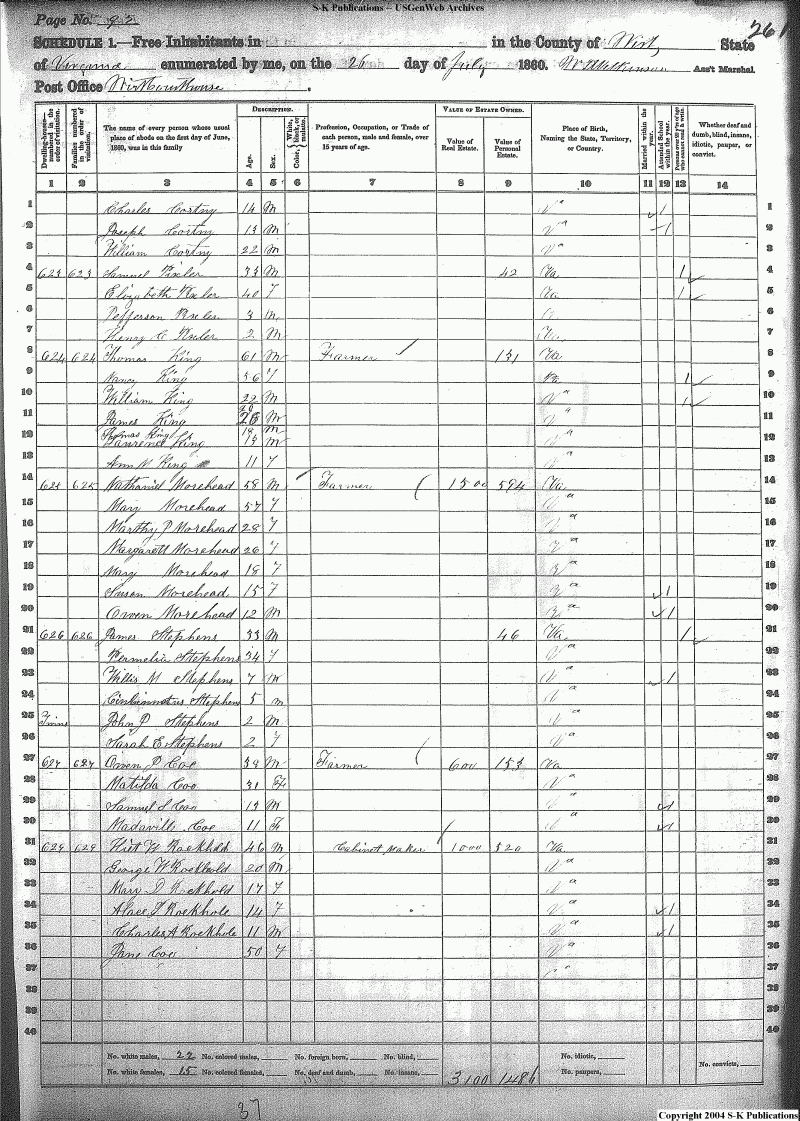 S-K Publications – USGenWeb Archives
Page No. 93
261
SCHEDULE 1.—Free Inhabitants in in the County of Wirt State
of Virginia enumerated by me, on the 26 day of July 1860. Ass't Marshal.
Post Office Wirt Courthouse.
DESCRIPTION. VALUE OF ESTATE OWNED.
Dwelling-houses— numbered in the order of visitation. Families numbered in the order of visitation. The name of every person whose usual place of abode on the first day of June, 1860, was in this family Age. Sex. Color, White, black, or mulatto. Profession, Occupation, or Trade of each person, male and female, over 15 years of age. Value of Real Estate. Value of Personal Estate. Place of Birth, Naming the State, Territory, or Country. Married within the year. Attended School within the year. Persons over 20 y'rs of age who cannot read & write. Whether deaf and dumb, blind, insane, idiotic, pauper, or convict.
1 2 3 4 5 6 7 8 9 10 11 12 13 14
1 Charles Cortny 14 M V " 1 1
2 Joseph Cortny 13 M V " 1 2
3 William Cortny 22 M V " 3
4 623 623 Samuel 33 M 42 Va 1 4
5 Elizabeth 40 f Va 1 5
6 Pefferson 3 m 6
7 Henry C 2 M Va. 7
8 624 624 Thomas King 61 M Farmer 131 Va 8
9 Nancy King 56 f Va 1 9
10 William King 22 M V " 1 10
11 James King 20 M V " 11
12 Thomas King 19 M
Laurence King 13 M V " 12
13 Ann M King 11 f V " 13
14 625 625 Nathaniel Morehead 58 M Farmer 1500 594 Va 14
15 Mary Morehead 57 f V " 15
16 Marthy P Morehead 28 f V " 16
17 Margarett Morehead 26 f V " 17
18 Mary Morehead 18 f V " 18
19 Susan Morehead 15 f V " 1 19
20 Owen Morehead 12 M V " 1 20
21 626 626 James Stephens 33 M 46 Va. 1 21
22 Permelia Stephens 34 f V " 22
23 Willis M Stephens 7 M V " 1 23
24 Cinbinnatus Stephens 5 m V " 24
25 Twins John P Stephens 2 M V " 25
26 Sarah E Stephens 2 f V " 26
27 627 627 Owen P Coe 38 M Farmer 600 153 Va 27
28 Matilda Coo 31 F V " 28
29 Samuel S Coo 13 M V " 1 29
30 Madaville Coe 11 F V " 1 30
31 629 629 Hiet W Rockhold 46 M Cabinet Maker 1000 520 Va. 31
32 George W Rockhold 20 M V " 32
33 Mary D Rockhold 17 f V " 33
34 Alace F Rockhole 14 f V " 1 34
35 Charles A Rockhole 11 M V " 1 35
36 Jane Coo 50 f V " 36
37 37
38 38
39 39
40 40
No. white males, 22 No. colored males, No. foreign born, No. blind, No. idiotic,
No. white females, 15 No. colored females, No. deaf and dumb, No. insane, 3100 1486 No. paupers, No. convicts,
37
Copyright 2004 S-K Publications